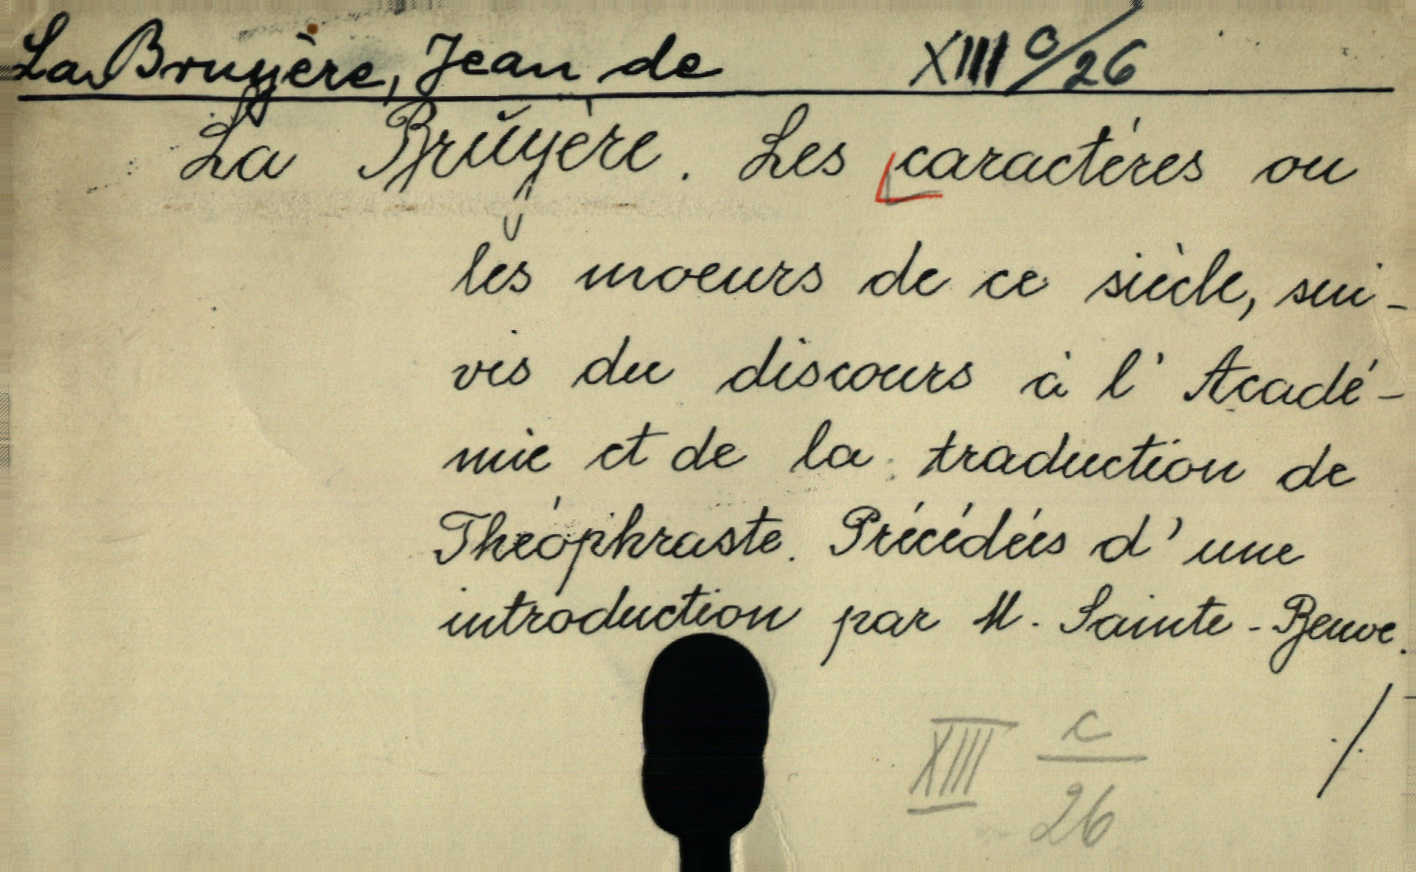 La Bruyère, Jean de XIII c/26
La Bruyère. Les caractéres ou
les moeurs de ce siècle, sui-
vis du discours à l' Acadé-
mie et de la traduction de
Théophraste. Précédées d'une
introduction par M. Sainte-Beuve.
./.
XIII c/26